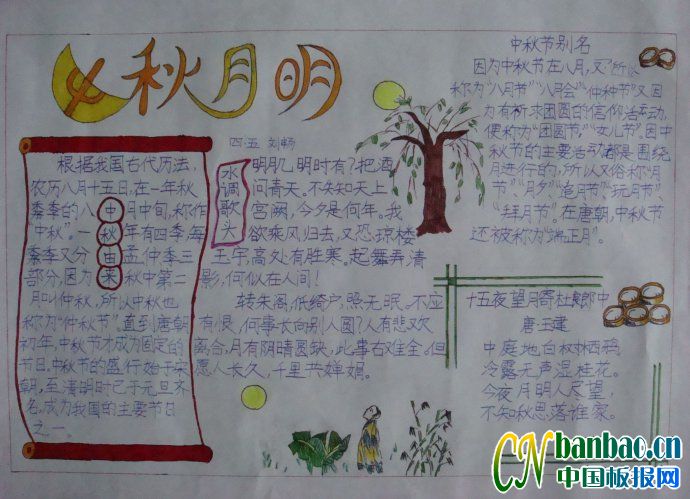 中秋月明
四.五 刘畅
根据我国古代历法,
农历八月十五日,在一年秋
季的八月中旬,称作
“中秋”。一年有四季,每
季又分孟仲季三
部分,因为秋中第二
月叫仲秋,所以中秋也
称为“仲秋节”。直到唐朝
初年,中秋节才成为固定的
节日,中秋节的盛行始于宋
朝,至清明时已于元旦齐
名,成为我国的主要节日
之一。
中
秋
由
来
水
调
歌
头
明几明时有?把酒
问青天。不知知天上
宫阙,今夕是何年。我
欲乘风归去,又恐琼楼
玉宇,高处有胜寒。起舞弄清
影,何似在人间!
转朱阁,低绮户,照无眠。不应
有恨,何事长向别人圆?人有悲欢
离合,月有阴晴圆缺,此事右难全。但
愿人长久,千里共婵娟。
中秋节别名
因为中秋节在八月,又所以
称为“八月节”“八月会”“仲秋节”又因
为有祈求团圆的信仰活动,
便称为“团圆节”“女儿节”。因中
秋节的主要活动都是围绕
月进行的,所以又俗称“月
节”“月夕”“追月节”“玩月节”、
“拜月节”。在唐朝,中秋节
还被称为“端正月”。
十五夜望月寄杜郎中
唐:王建
中庭地白树栖鸦,
冷露无声湿桂花。
今夜月明人尽望,
不知秋思落谁家。
CN banbao.cn
中国板报网